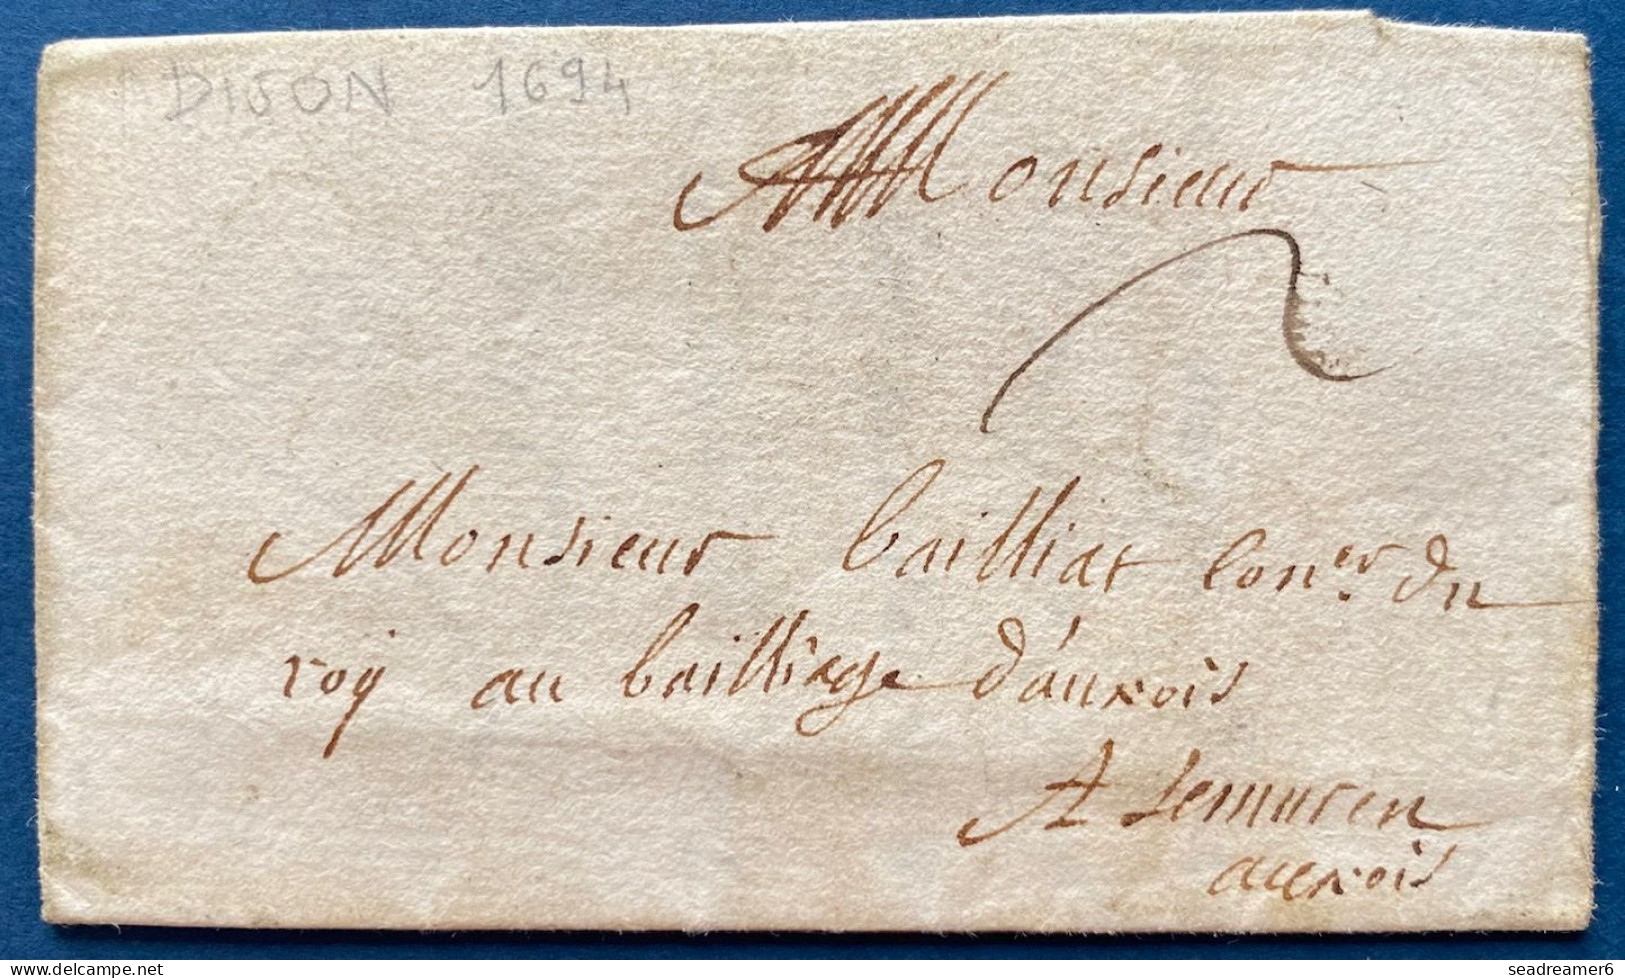 DIJON 1694
Monsieur
2
Monsieur bailliat Con.er du
roy au bailliage d'auxois
A Semur en
auxois
delcampe.net
seadreamer6